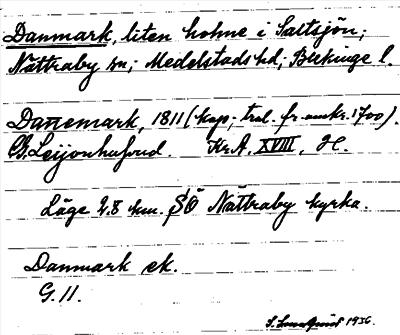 Danmark, liten holme i Saltsjön;
Nättraby sn; Medelstads hd, Blekinge l.
Danemark, 1811 (kop; trol. fr. omkr. 1700).
G. Leijonhufvud. Kr.A. XVIII, H.
Läge 2.8 km. SÖ Nättraby kyrka.
Danmark ek.
G. 11.
S. Lundquist 1936.